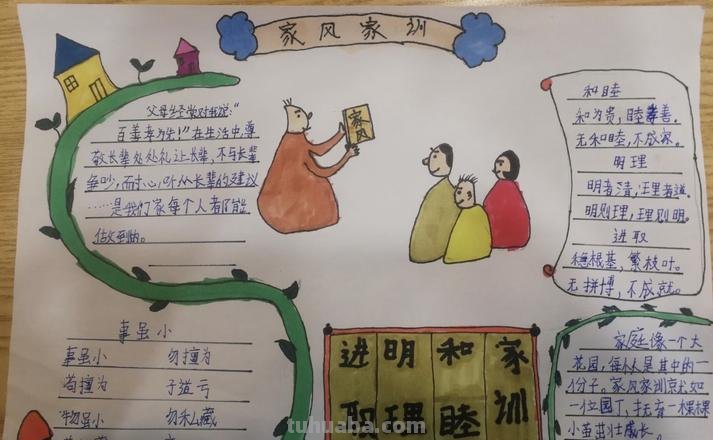 家风家训
父母经常对我说：“
百善孝为先！”在生活中，尊
敬长辈处处礼让长辈，不与长辈
争吵，而
听从长辈的建议
……是我们家每个人都能
做到的。
事虽小
事虽小 勿擅为
苟擅为 子道亏
物虽小 勿私藏
家风
和睦
和为贵，睦善。
无和睦，不成家。
明理
明者清，理者道。
明则理，理则明。
进取
稳根基，繁枝叶。
无拼博，不成就。
进 明 和 家
取 理 睦 训
家庭像一个大
花园，每个人是其中的一
份子。家风家训就如
一位园丁，
有一棵棵
小苗茁壮成长。
tuhuaba.com